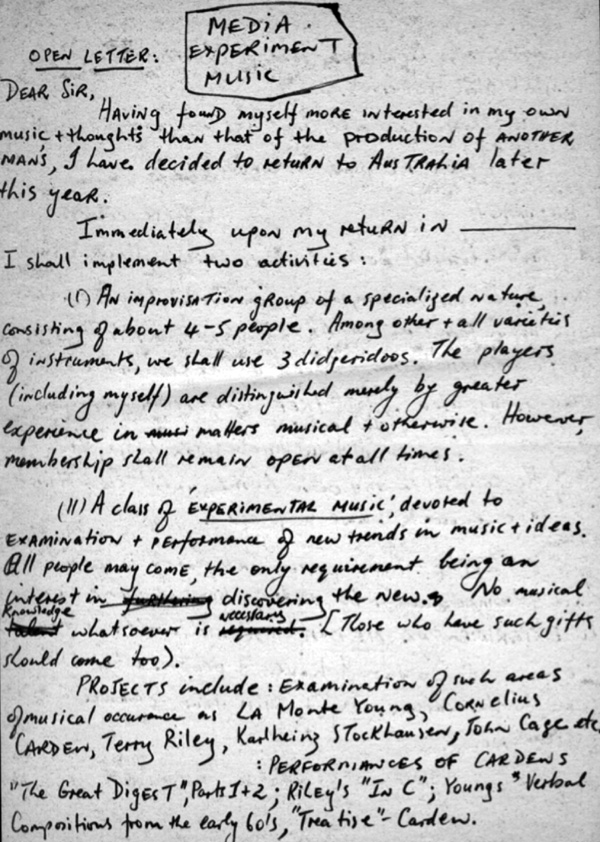 MEDIA .
EXPERIMENT
MUSIC
OPEN LETTER:
DEAR SIR,
HAVING found myself MORE interested in my own
music + thoughts than that of the production of ANOTHER
MAN'S, I have decided to return to AUSTRALIA later
this year.
Immediately upon my return in
I shall implement two activities :
(I) AN improvisation group of a specialized nature,
consisting of about 4-5 people. Among other + all varieties
of instruments, we shall use 3 didgeridoos. The players
(including myself) are distinguished merely by greater
experience in musi matters musical + otherwise. However,
membership shall remain open at all times.
(II) A class of 'EXPERIMENTAL MUSIC', devoted to
EXAMINATION + PERFORMANCE of new trends in music + ideas.
All people may come, the only requirement being an
interest in furthering discovering the new. No musical
knowledge necessary
talent whatsoever is required. (Those who have such gifts
should come too).
PROJECTS include : Examination of such areas
of musical occurance as LA Monte Young, CORNELIUS
CARDEW, Terry Riley, Karlheinz STOCKHAUSEN, John Cage etc.
: PERFORMANCES OF CARDEWS
"The Great DIGEST", Parts 1+2 ; Riley's "In C" ; Youngs Verbal
Compositions from the early 60's, "Treatise" - Cardew.